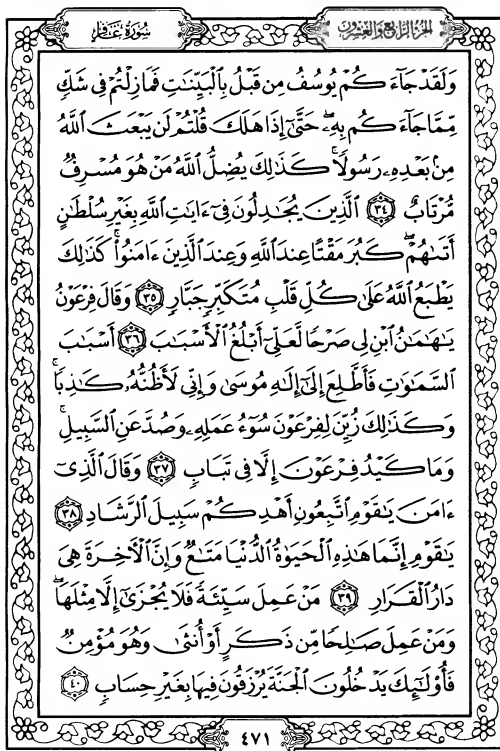 سُورَةُ غَافِرٍ
الجُزْءُ الرَّابِعُ وَالعِشْرُونَ
وَلَقَدْ جَآءَكُمْ يُوسُفُ مِن قَبْلُ بِٱلْبَيِّنَٰتِ فَمَا زِلْتُمْ فِى شَكٍّ
مِّمَّا جَآءَكُم بِهِۦ ۖ حَتَّىٰٓ إِذَا هَلَكَ قُلْتُمْ لَن يَبْعَثَ ٱللَّهُ
مِنۢ بَعْدِهِۦ رَسُولًا ۚ كَذَٰلِكَ يُضِلُّ ٱللَّهُ مَنْ هُوَ مُسْرِفٌ
مُّرْتَابٌ ٣٤ ٱلَّذِينَ يُجَٰدِلُونَ فِىٓ ءَايَٰتِ ٱللَّهِ بِغَيْرِ سُلْطَٰنٍ
أَتَىٰهُمْ ۖ كَبُرَ مَقْتًا عِندَ ٱللَّهِ وَعِندَ ٱلَّذِينَ ءَامَنُوا۟ ۚ كَذَٰلِكَ
يَطْبَعُ ٱللَّهُ عَلَىٰ كُلِّ قَلْبِ مُتَكَبِّرٍ جَبَّارٍ ٣٥ وَقَالَ فِرْعَوْنُ
يَٰهَٰمَٰنُ ٱبْنِ لِى صَرْحًا لَّعَلِّىٓ أَبْلُغُ ٱلْأَسْبَٰبَ ٣٦ أَسْبَٰبَ
ٱلسَّمَٰوَٰتِ فَأَطَّلِعَ إِلَىٰٓ إِلَٰهِ مُوسَىٰ وَإِنِّى لَأَظُنُّهُۥ كَٰذِبًا ۚ
وَكَذَٰلِكَ زُيِّنَ لِفِرْعَوْنَ سُوٓءُ عَمَلِهِۦ وَصُدَّ عَنِ ٱلسَّبِيلِ ۚ
وَمَا كَيْدُ فِرْعَوْنَ إِلَّا فِى تَبَابٍ ٣٧ وَقَالَ ٱلَّذِىٓ
ءَامَنَ يَٰقَوْمِ ٱتَّبِعُونِ أَهْدِكُمْ سَبِيلَ ٱلرَّشَادِ ٣٨
يَٰقَوْمِ إِنَّمَا هَٰذِهِ ٱلْحَيَوٰةُ ٱلدُّنْيَا مَتَٰعٌ وَإِنَّ ٱلْءَاخِرَةَ هِىَ
دَارُ ٱلْقَرَارِ ٣٩ مَنْ عَمِلَ سَيِّئَةً فَلَا يُجْزَىٰٓ إِلَّا مِثْلَهَا ۖ
وَمَنْ عَمِلَ صَٰلِحًا مِّن ذَكَرٍ أَوْ أُنثَىٰ وَهُوَ مُؤْمِنٌ
فَأُو۟لَٰٓئِكَ يَدْخُلُونَ ٱلْجَنَّةَ يُرْزَقُونَ فِيهَا بِغَيْرِ حِسَابٍ ٤٠
٤٧١